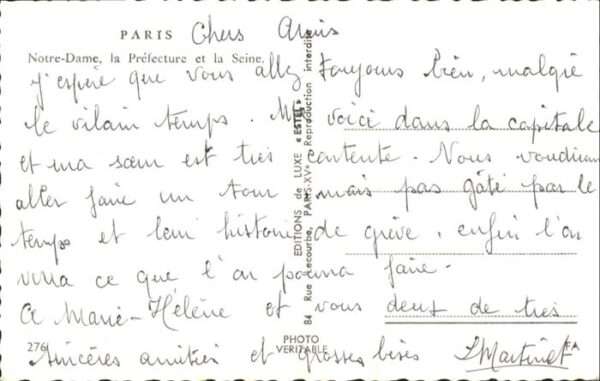 PARIS Chers Amis
Notre-Dame, la Préfecture et la Seine.
J'espère que vous allez toujours bien, malgré
le vilain temps. Me voici dans la capitale
et ma sœur est très contente. Nous voudrions
aller faire un tour mais pas gâté par le
temps et leur histoire de grève, enfin l'on
verra ce que l'on pourra faire.
A Marie-Hélène et vous deux de très
sincères amitiés et grosses bises J Martinet
276
PHOTO
VERITABLE
EDITIONS de LUXE « ESTEL »
84 Rue Lecourbe, PARIS-XV - Reproduction interdite